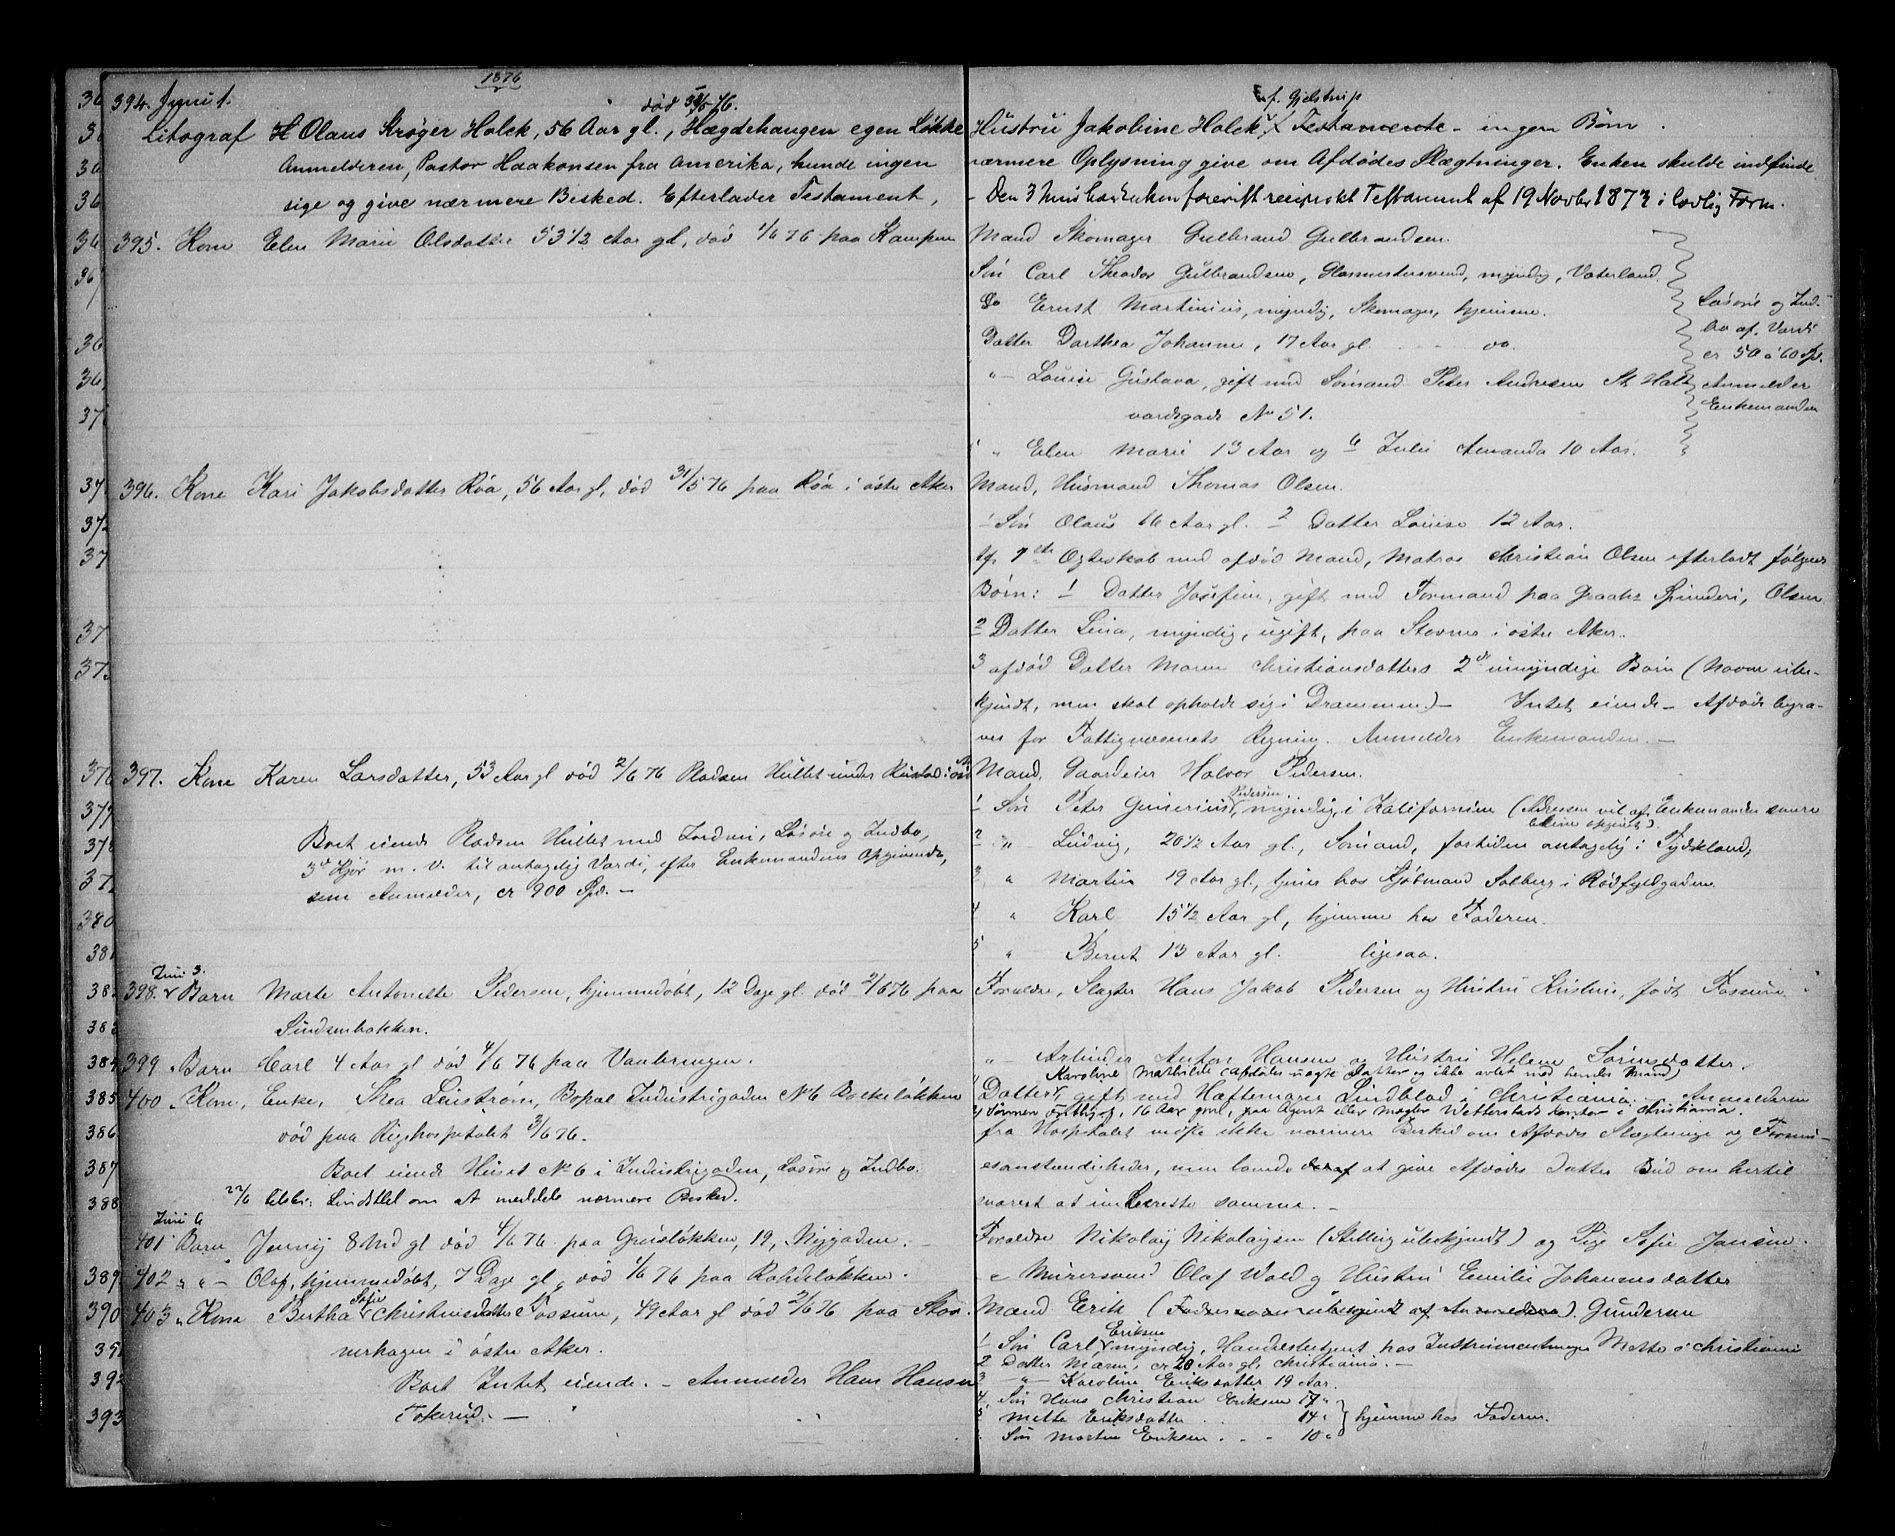 1876
394. Juni 1.
død 31/5 76.
Litograf Olaus Krøger Holck, 56 Aar gl., Hægdehaugen egen Løkke
Anmelderen, Pastor Haakonsen fra Amerika, kunde ingen
sige og give nærmere Besked. Efterlader Testament,
f. Gjelstrup
Hustru Jakobine Holck, Testamente - ingen Børn.
nærmere Oplysning give om Afdødes Slægtninger. Enken skulde indfinde
- Den 3 Juni har Enken forevist reciprokt Testament af 19 Novbr 1873 i lovlig Form.
395. Kone Elen Marie Olsdatter 53 1/2 Aar gl, død 1/6 76 paa Kampen
Mand Skomager Gulbrand Gulbrandsen.
Søn Carl Theodor Gulbrandsen, Glasmestersvend, myndig, Vaterland.
Do Ernst Martinius, myndig, Skomager, hjemme.
Datter Dorthea Johanne, 17 Aar gl. - - - - do.
" - Louise Gustava, gift med Sømand Peter Andresen St. Hall-
vardsgade No 51.
" Elen Marie 13 Aar og 6 Julie Amanda 10 Aar.
Løsøre og Ind-
bo af Værdi
cr 50 a 60 Spd.
Anmelder
Enkemanden
396. Kone Kari Jakobsdatter Røa, 56 Aar gl, død 31/5 76 paa Røa i østre Aker
Mand, Husmand Thomas Olsen.
1 Søn Olaus 16 Aar gl. 2 Datter Louise 12 Aar.
Af 1ste Ægteskab med afdød Mand, Matros Christian Olsen efterladt følgende
Børn: 1 Datter Josefine, gift med Formand paa Graahs Spinderi, Olsen
2 Datter Lina, myndig, ugift, paa Stovner i østre Aker.
3 afdød Datter Maren Christiansdatters 2de umyndige Børn (Navne ube-
kjendt, men skal opholde sig i Drammen) - Intet eiende - Afdøde begra-
ves for Fattigvæsenets Regning. Anmelder Enkemanden. -
397. Kone Karen Larsdatter, 53 Aar gl død 2/6 76 Pladsen Hullet under Rustad i
Boet eiende Pladsen Hullet med Jordvei, Løsøre og Indbo,
3de Kjør m. V. til antagelig Værdi, efter Enkemandens Opgivende,
som Anmelder, cr 900 Spd. -
Mand, Gaardeier Halvor Pedersen.
1 Søn Peter Gunerius Pedersen, myndig, i Kalifornien (Adressen vil af Enkemanden senere
blive opgivet).
2 " Ludvig, 20 1/2 Aar gl., Sømand, fortiden antagelig i Tydskland,
3 " Martin 19 Aar gl., tjener hos Kjøbmand Solberg i Rødfyldgaden.
4 " Karl 15 1/2 Aar gl, hjemme hos Faderen.
5 " Bernt 13 Aar gl. ligesaa.
Juni 3.
398. Barn Marte Antonette Pedersen, hjemmedøbt, 12 Dage gl. død 2/6 76 paa
Sindsenbakken.
Forældre, Slagter Hans Jakob Pedersen og Hustru Kristine, født Fossum.
399 " Barn Carl 4 Aar gl død 4/6 76 paa Vaalerengen.
" - Arbeider Anton Hansen og Hustru Helene Sørensdatter.
Karoline Mathilde (Afdødes uægte Datter og ikke avlet med hendes Mand)
400 " Kone, Enke, Thea Leistrøm, Bopæl Industrigaden No 6 Balkeløkken
død paa Rigshospitalet 3/6 76.
Boet eiende Huset No 6 i Industrigaden, Løsøre og Indbo.
22/6 tilskr: Lindblad om at meddele nærmere Besked.
Datter gift med Hæftemager Lindblad i Christiania. - Anmelderen
2/ Sønnen Frithjof, 16 Aar gml, paa Agent eller Mægler Wetterstads Kontor i Christiania.
fra Hospitalet vidste ikke nærmere Besked om Afdødes Slægtninge og Formu-
esomstændigheder, men lovede at give Afdødes Datter Bud om hertil
snarest at underrette samme. -
Juni 6
401 Barn Jenny 8 Md gl død 4/6 76 paa Grünsløkken, 19, Nygaden. -
Forældre Nikolay Nikolaysen (Stilling ubekjendt) og Pige Sofie Jansen.
402 " " - Olaf, hjemmedøbt, 7 Dage gl, død 1/6 76 paa Rohdeløkken.
" Murersvend Olaf Wold og Hustru Emilie Johannesdatter
403 " Kone Bertha Sofie Christensdatter Fossum, 49 Aar gl død 2/6 76 paa Stov-
nerhagen i østre Aker.
Boet Intet eiende. - Anmelder Hans Hansen
Tokerud. -
Mand Erik (Fadersnavn ubekjendt af Anmelderen). Gundersen
1 Søn Carl Eriksen myndig, Handelsbetjent hos Instrumentmager Mette i Christiania
2 Datter Maren, cr 20 Aar gl, Christiania. -
3 -"- Karoline Eriksdatter 19 Aar.
4 Søn Hans Christian Eriksen 17 "
5 Mette Eriksdatter . . 14 " hjemme hos Faderen.
Søn Martin Eriksen . . - 10 "
372
380
385
386
387
388
389
390
392
393